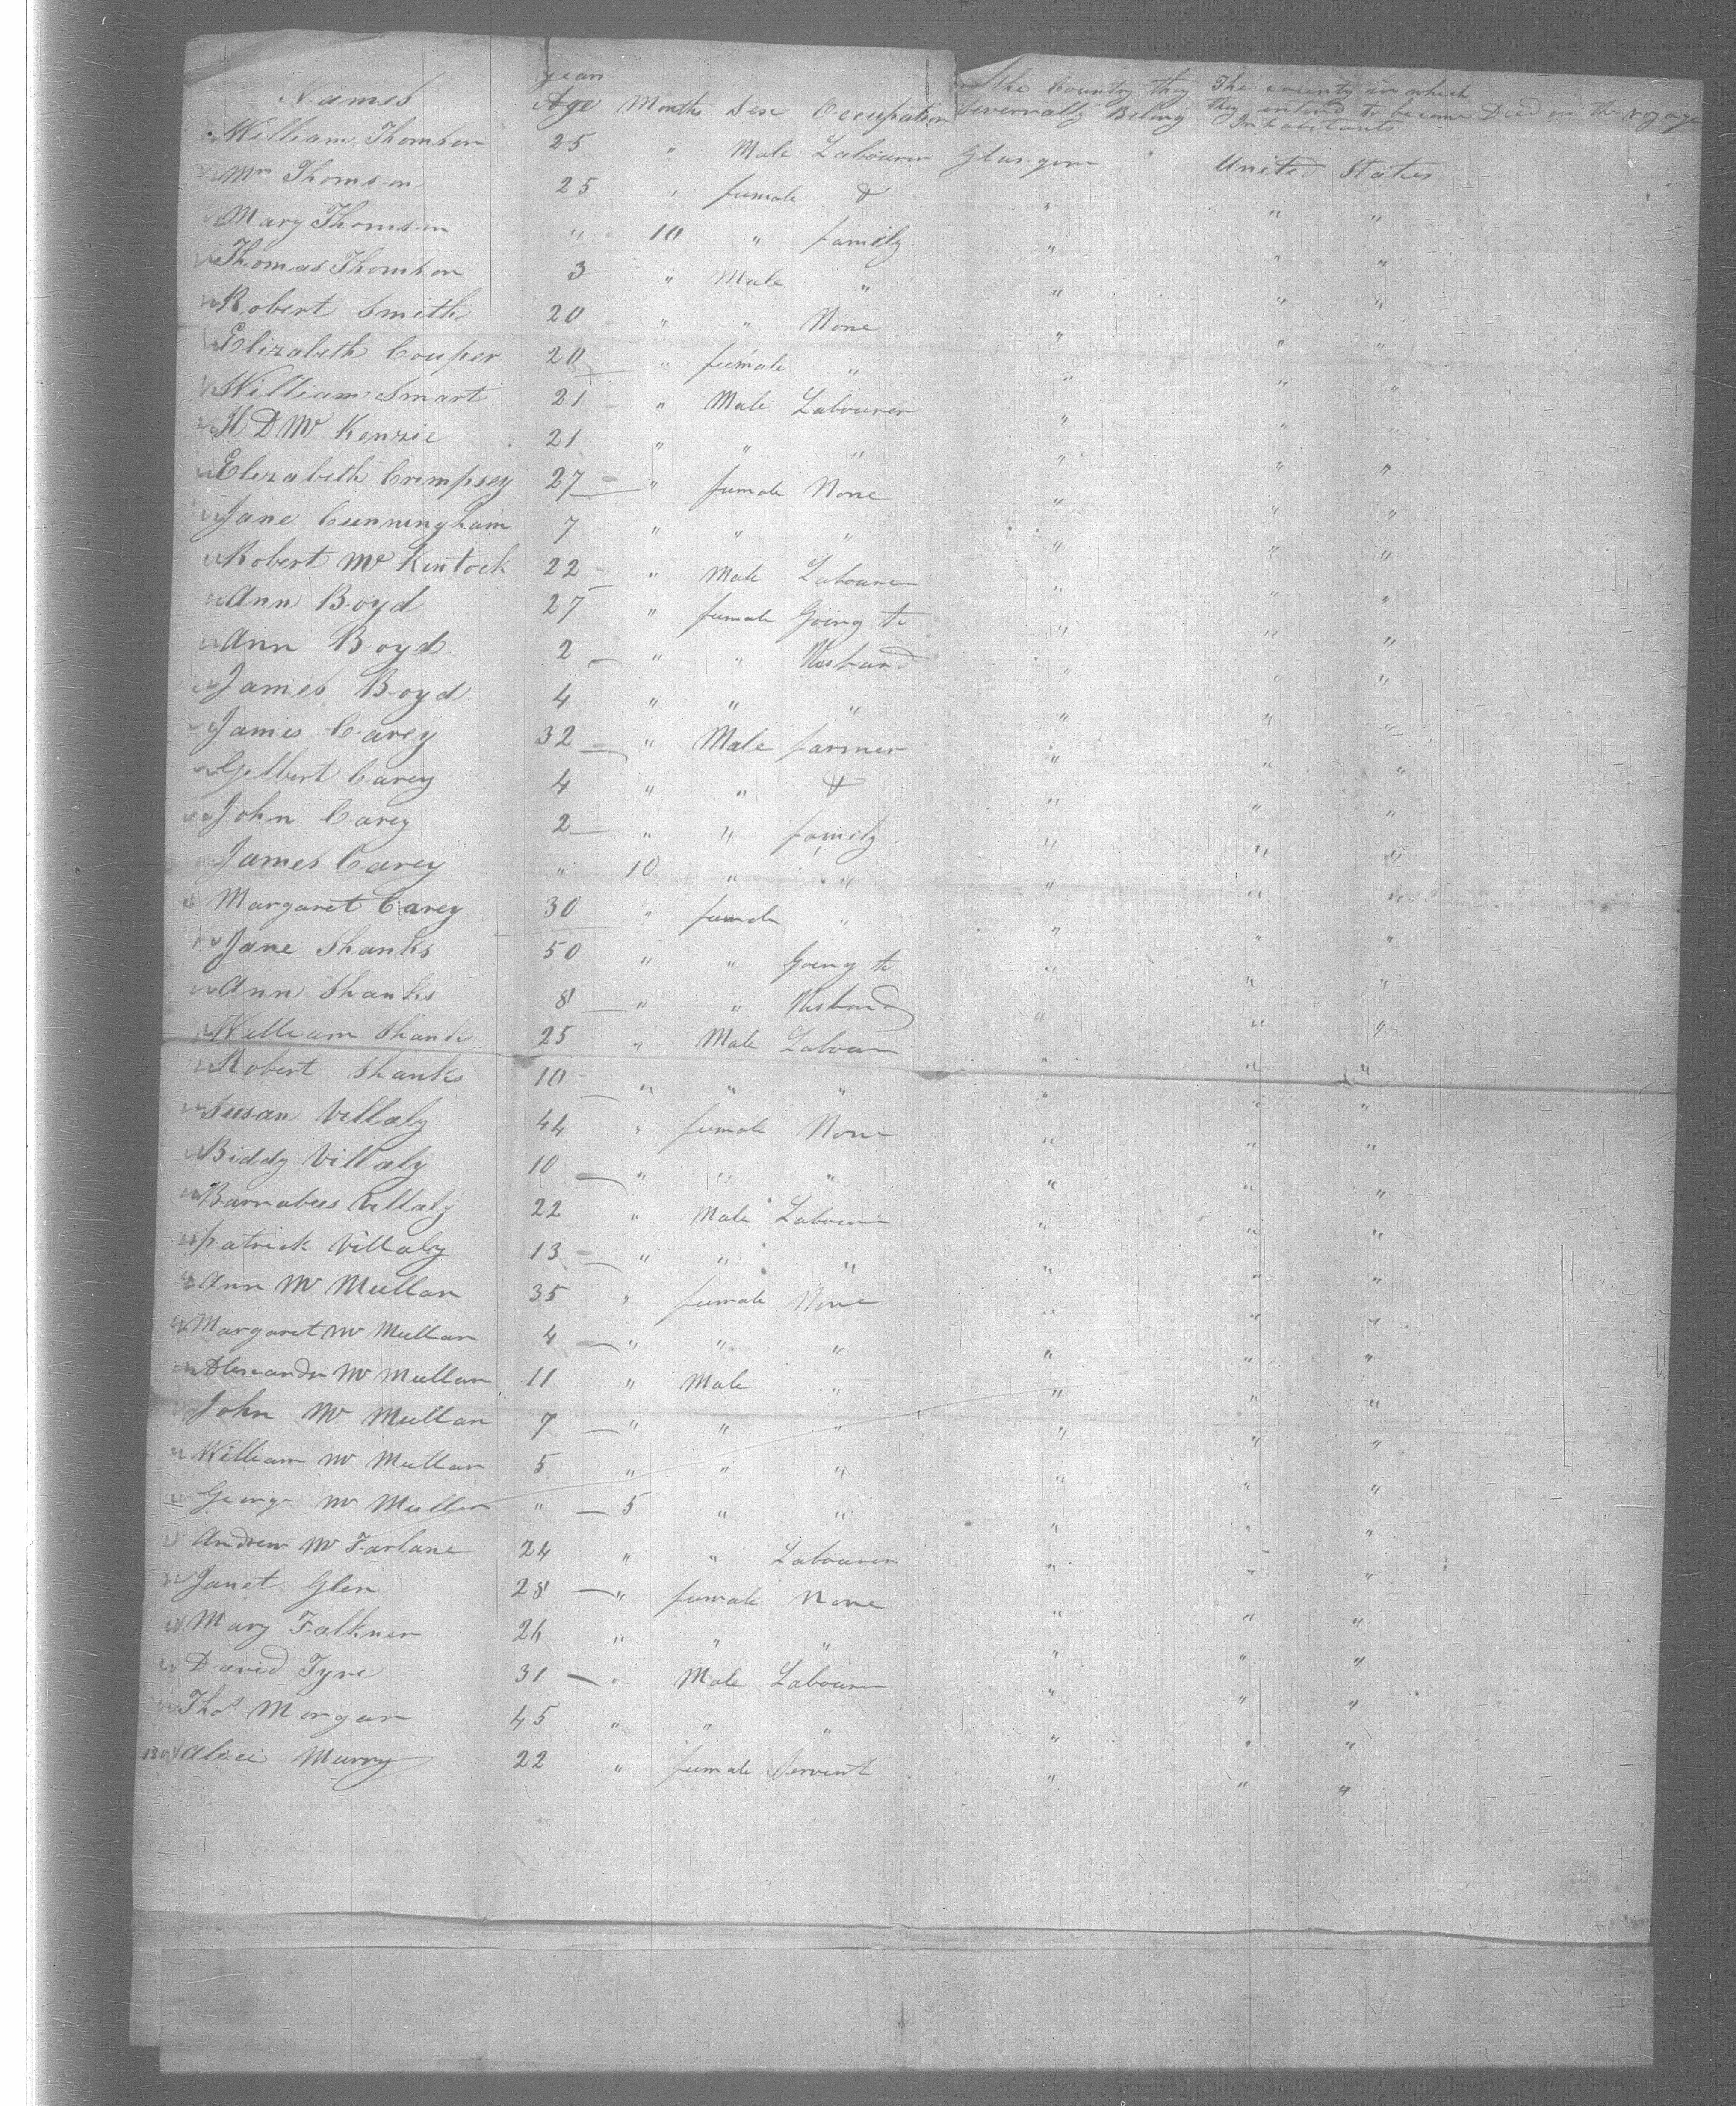 Names years Age Months Sex Occupation The Country they severrally Belong The county in which they intend to become Inhabitants Died on the voyage
William Thomson 25 " Male Labourer Glasgow United States
Mrs Thomson 25 " female & " " "
Mary Thomson " 10 " family " " "
Thomas Thomson 3 " Male " " " "
Robert Smith 20 " " None " " "
Elizabeth Couper 20 " female " " " "
William Smart 21 " Male Labourer " " "
H D Mc Kenzie 21 " " " " " "
Elizabeth Crimpsey 27 " female None " " "
Jane Cunningham 7 " " " " " "
Robert Mc Kintock 22 " Male Labourer " " "
Ann Boyd 27 " female Going to " " "
Ann Boyd 2 " " Husband " " "
James Boyd 4 " " " " " "
James Carey 32 " Male farmer " " "
Gilbert Carey 4 " " & " " "
John Carey 2 " " family " " "
James Carey " 10 " " " " "
Margaret Carey 30 " female " " " "
Jane Shanks 50 " " Going to " " "
Ann Shanks 8 " " Husband " " "
William Shanks 25 " Male Labourer " " "
Robert Shanks 10 " " " " " "
Susan Villaly 44 " female None " " "
Biddy Villaly 10 " " " " " "
Barnabees Villaly 22 " Male Labourer " " "
patrick Villaly 13 " " " " " "
Ann Mc Mullan 35 " female None " " "
Margaret Mc Mullan 4 " " " " " "
Alexander Mc Mullan 11 " Male " " " "
John Mc Mullan 7 " " " " " "
William Mc Mullan 5 " " " " " "
George Mc Mullan " 5 " " " " "
Andrew Mc Farlane 24 " " Labourer " " "
Janet Glen 28 " female None " " "
Mary Falkner 26 " " " " " "
David Tyre 31 " Male Labourer " " "
Thos Morgan 45 " " " " " "
Alice Murry 22 " female Servent " " "